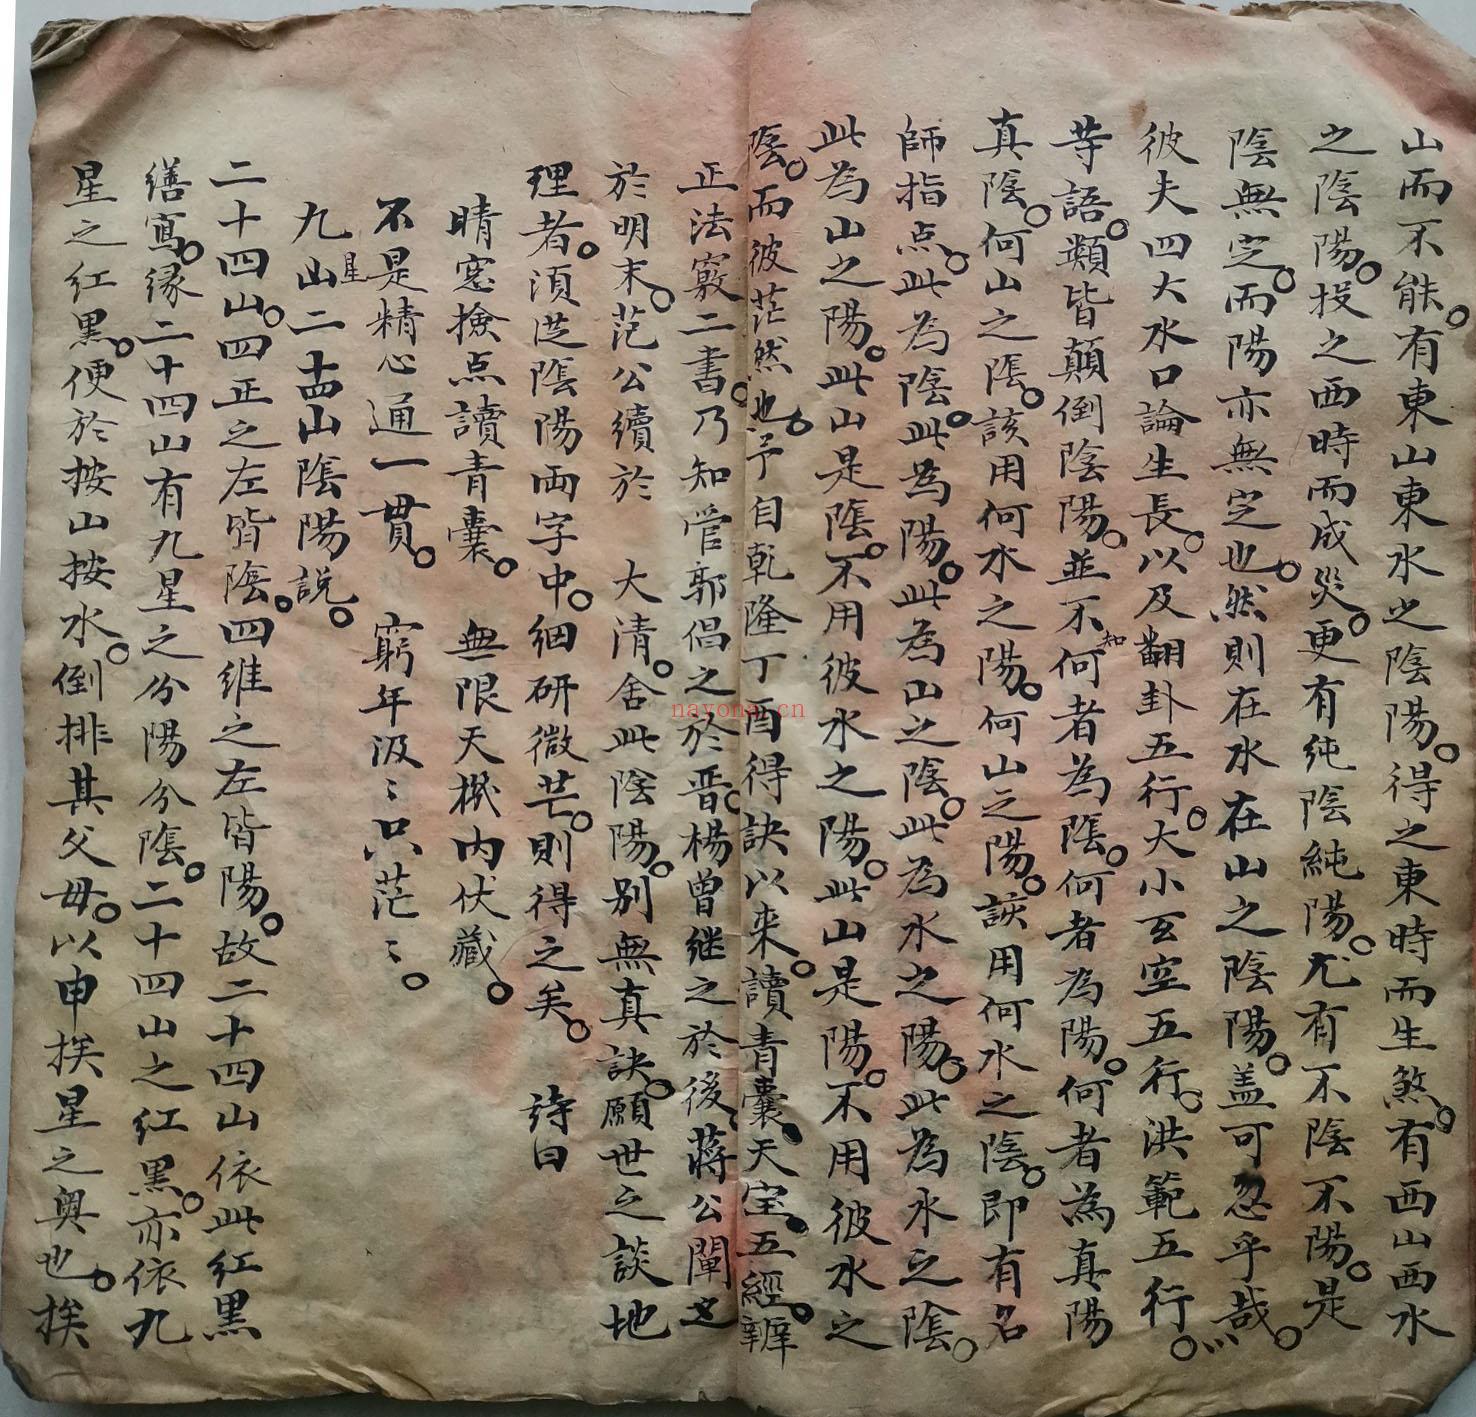 山而不能。有東山東水之陰陽。得之東時而生煞。有西山西水
之陰陽。投之西時而成災。更有純陰純陽。尤有不陰不陽。是
陰無定。而陽亦無定也。然則在水在山之陰陽。盖可忽乎哉。
彼夫四大水口論生長。以及翻卦五行。大小玄空五行。洪範五行。
等語。類皆顛倒陰陽。並不知何者為陰。何者為陽。何者為真陽
真陰。何山之陰。該用何水之陽。何山之陽。該用何水之陰。即有名
師指点。此為陰。此為陽。此為山之陰。此為水之陽。此為水之陰。
此為山之陽。此山是陰。不用彼水之陽。此山是陽。不用彼水之
陰。而彼茫然也。予自乾隆丁酉得訣以来。讀青囊、天宝、五經。辧
正法竅二書。乃知管郭倡之於晋。楊曾继之於後。蒋公闡之
於明末。范公續於 大清。舍此陰陽。别無真訣。願世之談地
理者。須從陰陽両字中。細研微芒。則得之矣。 詩曰
晴窓撿点讀青囊。 無限天機内伏藏。
不是精心通一貫。 窮年汲〻只茫〻。
九星山二十四山陰陽説。
二十四山。四正之左皆陰。四维之左皆陽。故二十四山依此红黑
缮寫。缘二十四山有九星之分陽分陰。二十四山之红黑。亦依九
星之红黑。便於按山按水。倒排其父母。以申挨星之奥也。挨
nayona.cn